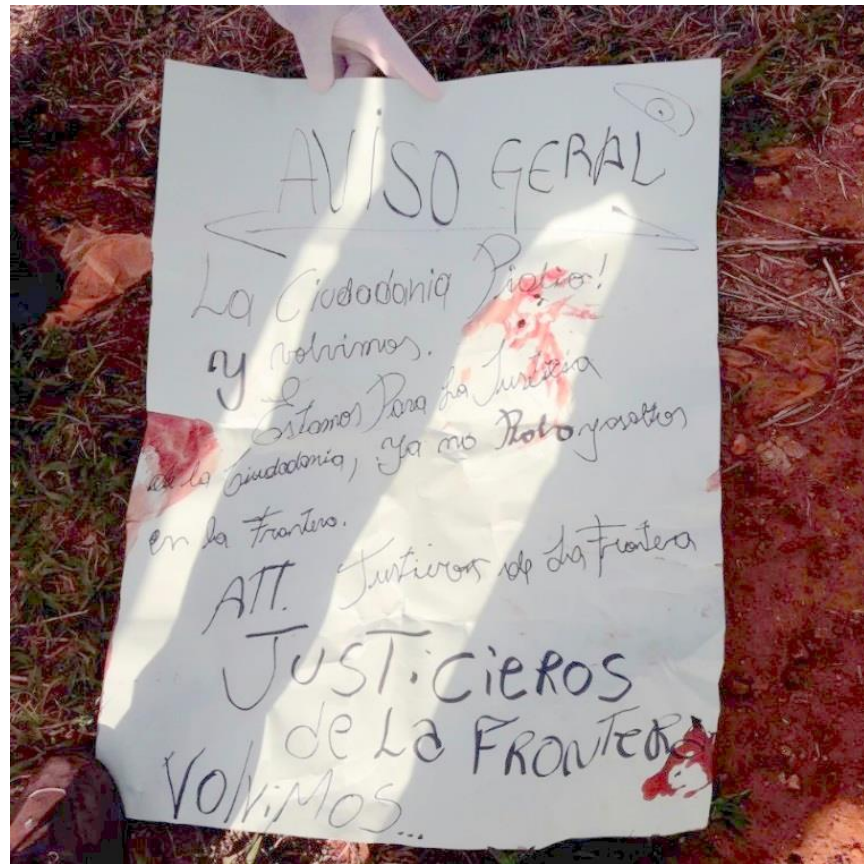 AVISO GERAL
La Ciudadania Pidio!
y volvimos.
Estamos Para La Justicia
de la Ciudadania, Ya no Robo y asaltos
en la Frontera.
ATT. Justicieros de La Frontera
JUSTiCiEROS
de La FRONTERA
VOlViMOS...